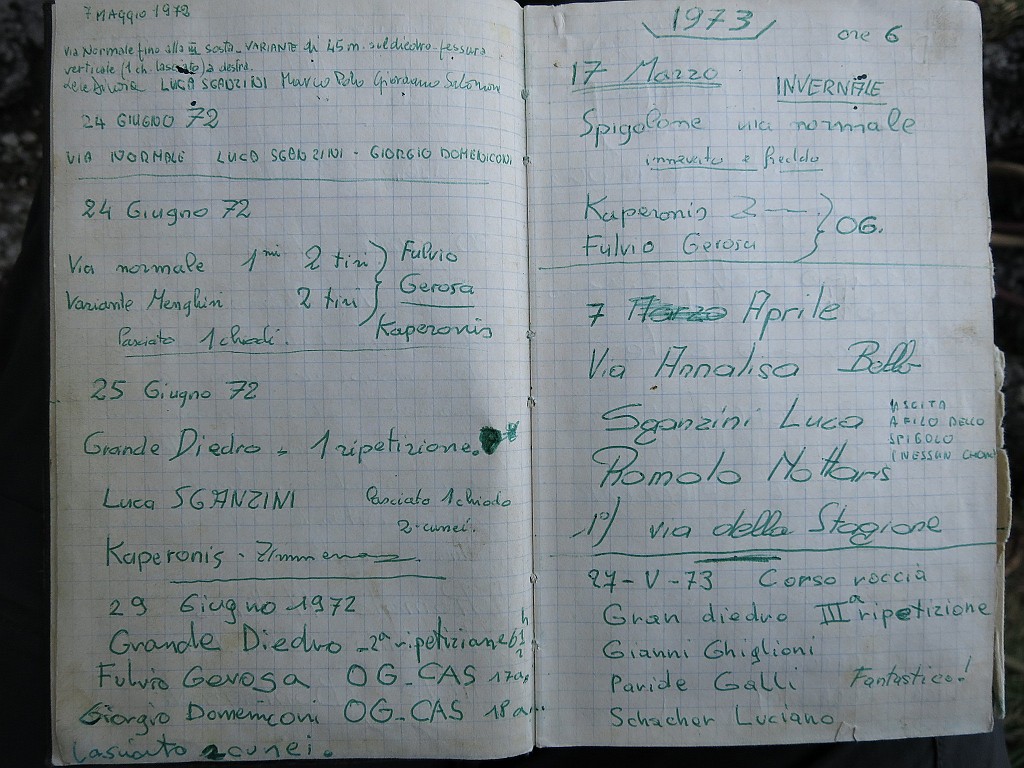 7 MAGGIO 1972
Via Normale fino alla III sosta - VARIANTE di 45 m. sul diedro-fessura
verticale (1 ch. lasciato) a destra.
LUCA SGANZINI Marco Polo Giordano Salomon
24 GIUGNO 72
VIA NORMALE LUCA SGANZINI - GIORGIO DOMENICONI
24 Giugno 72
Via normale 1mi 2 tiri } Fulvio
Gerosa
Variante Menghini 2 tiri
Kaperonis
Lasciato 1 chiodi.
25 Giugno 72
Grande Diedro - 1 ripetizione.
Luca SGANZINI Lasciato 1 chiodo
2 cunei.
Kaperonis -
29 Giugno 1972
Grande Diedro - 2a ripetizione 6 1/2 h
Fulvio Gerosa OG-CAS 17a.
Giorgio Domeniconi OG-CAS 18a...
Lasciato 2 cunei.
1973
ore 6
17 Marzo
INVERNALE
Spigolone via normale
innevato e freddo
Kaperonis 2 } OG.
Fulvio Gerosa
7 Marzo Aprile
Via Annalisa Bella
Sganzini Luca
USCITA
A FILO DELLO
SPIGOLO
(NESSUN CHIODO
Romolo Nottaris
1°) via della Stagione
27-V-73 Corso roccia
Gran diedro IIIa ripetizione
Gianni Ghiglioni
Paride Galli Fantastico!
Schacher Luciano